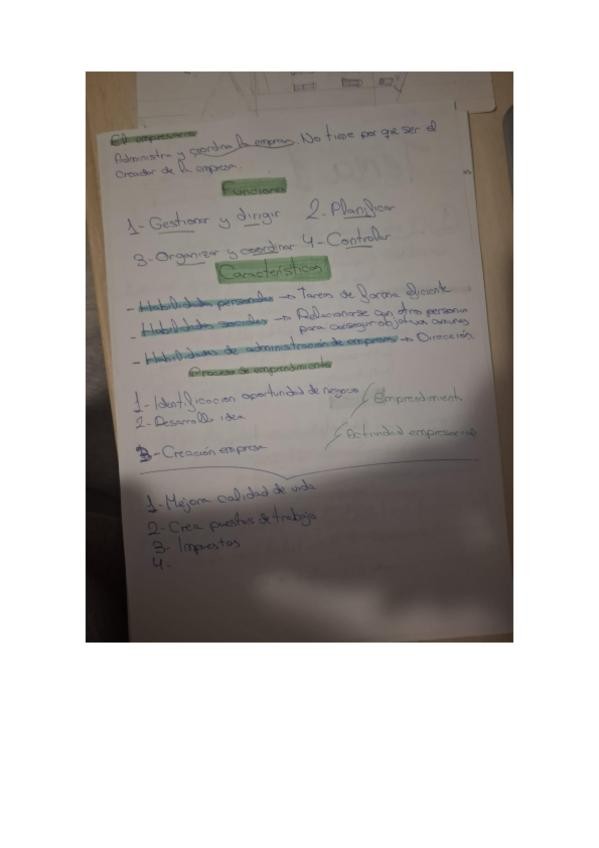 El empresario
Administra y coordina la empresa. No tiene por que ser el
creador de la empresa.
Funciones
1- Gestionar y dirigir 2- Planificar
3- Organizar y coordinar 4- Controlar
Características
- Habilidades personales → Tareas de forma eficiente
- Habilidades sociales → Relacionarse con otras personas
para conseguir objetivos comunes
- Habilidades de administración de empresas → Dirección
Proceso de emprendimiento
1- Identificacion oportunidad de negocio
Emprendimient
2- Desarrollo idea
Actividad empresarial
3- Creación empresa
1- Mejora calidad de vida
2- Crea puestos de trabajo
3- Impuestos
4-